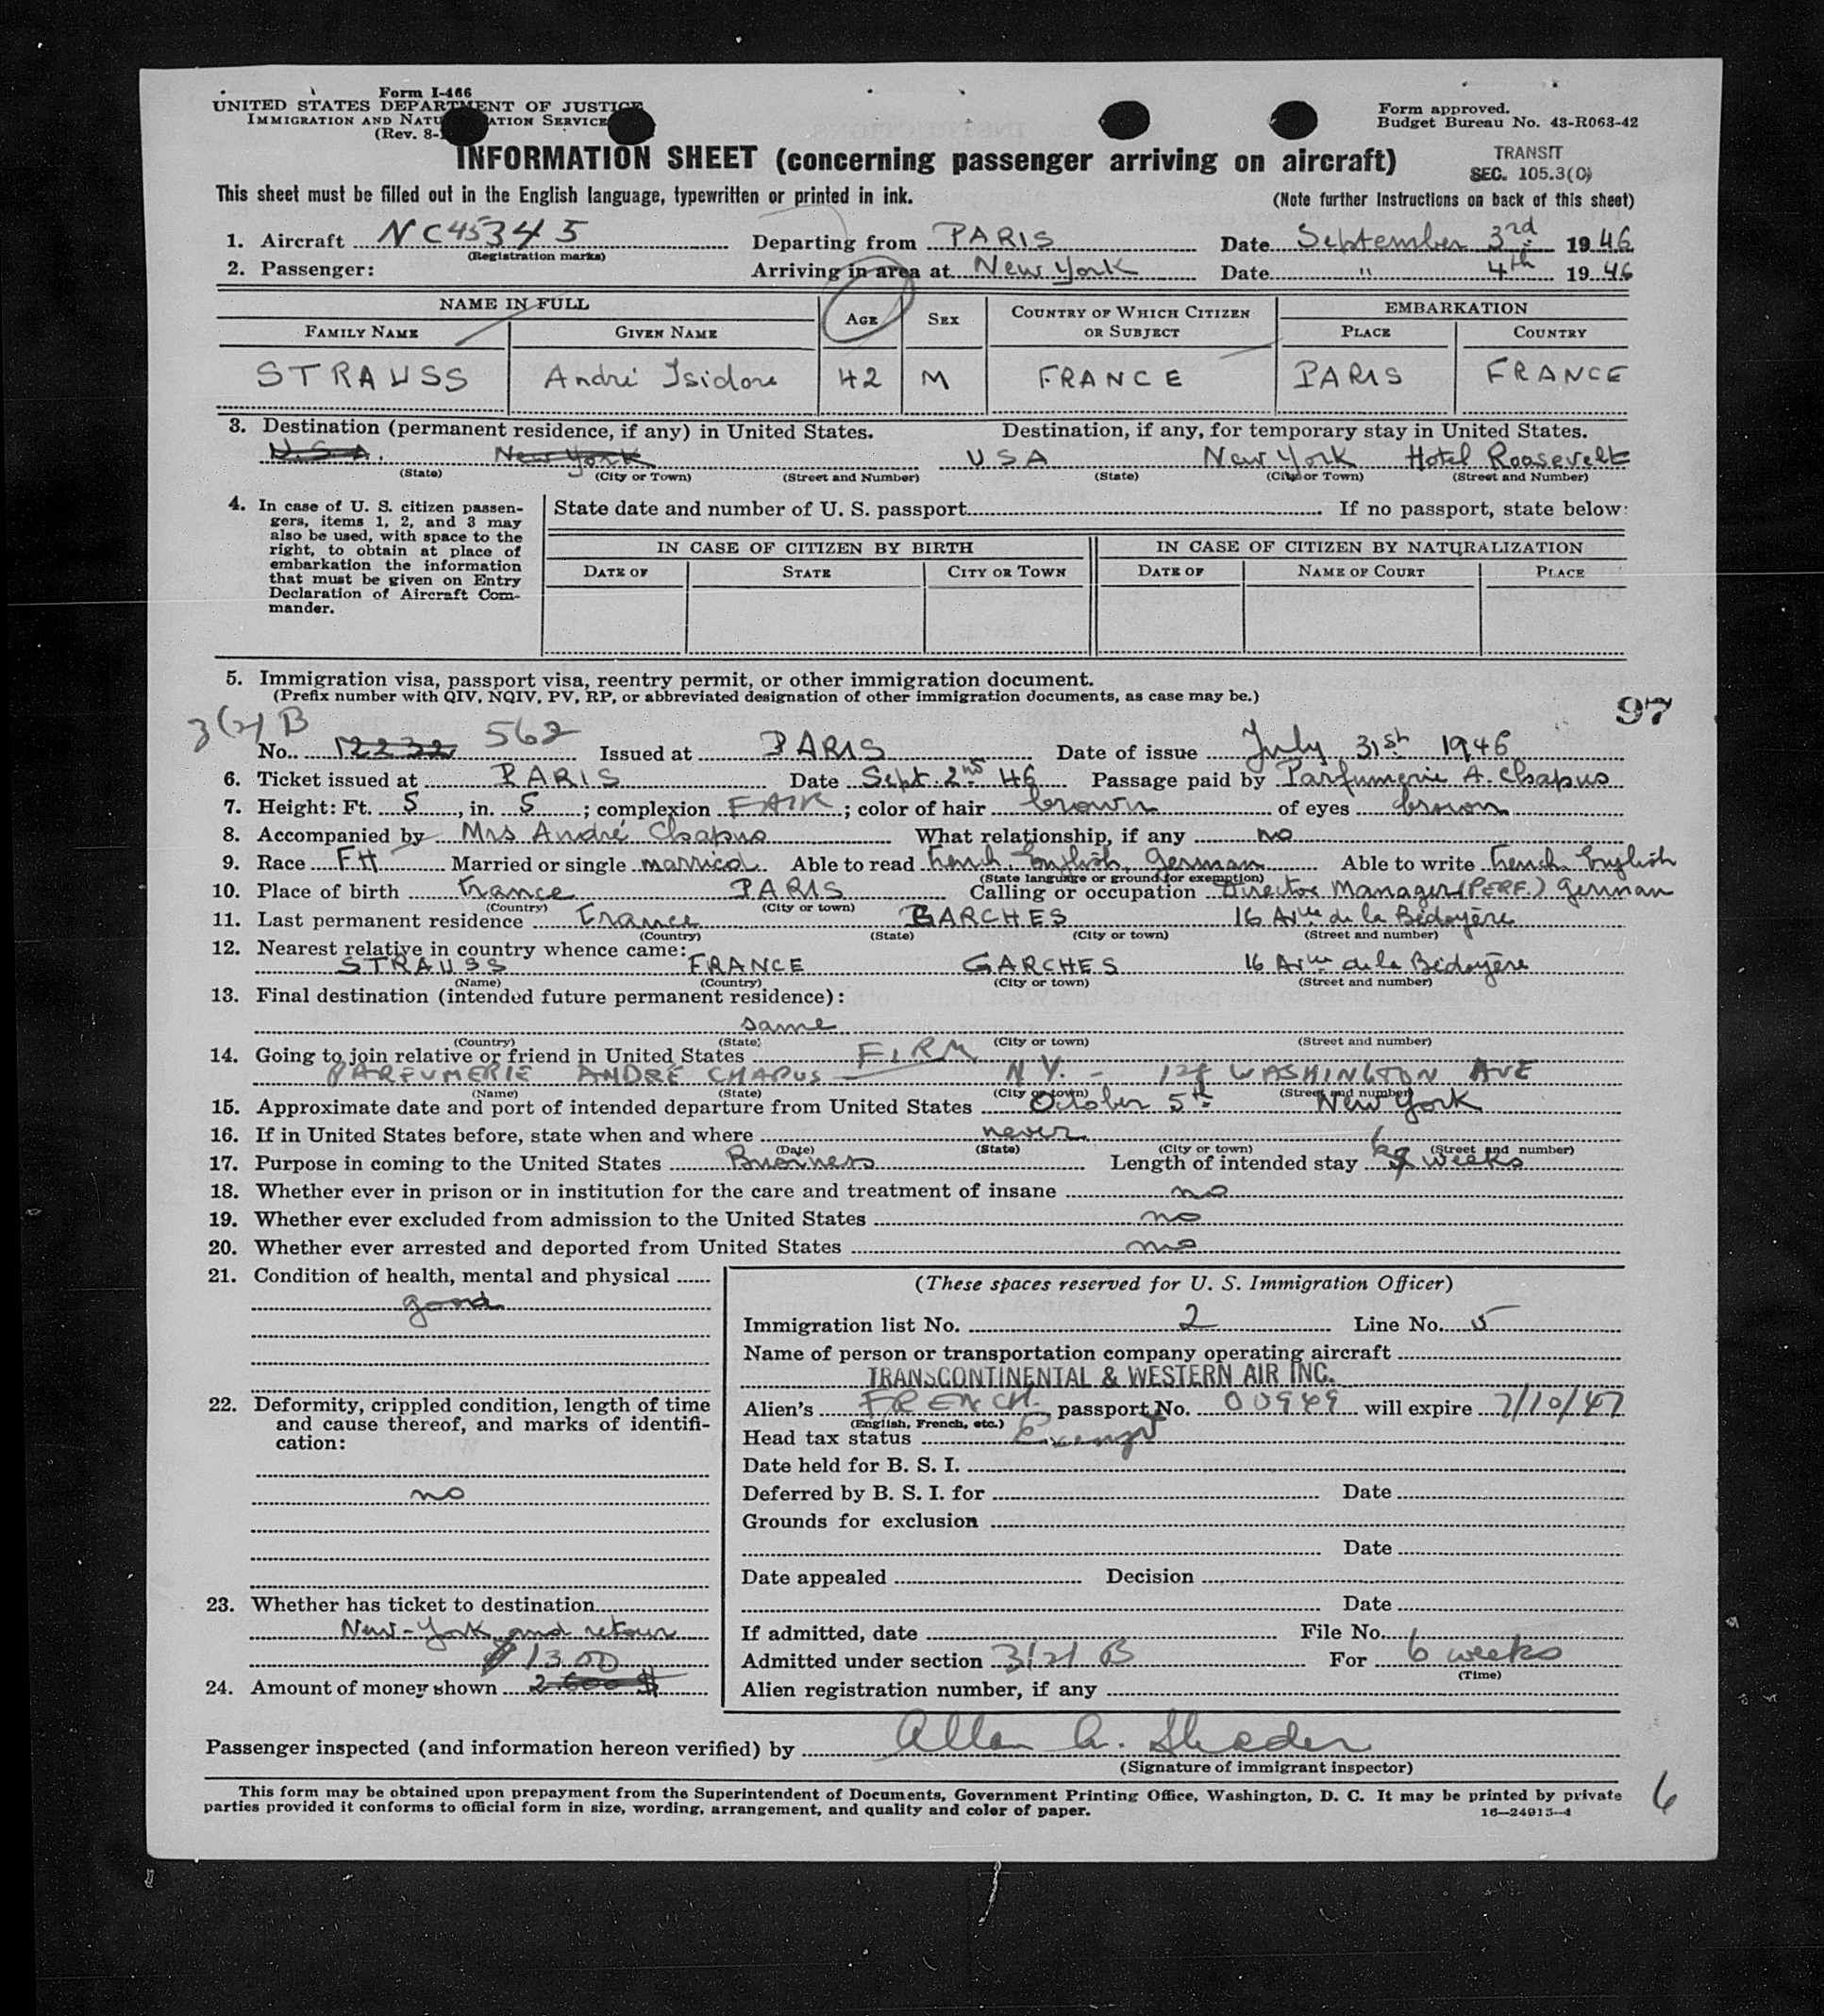 Form I-466
UNITED STATES DEPARTMENT OF JUSTICE
IMMIGRATION AND NATU ATION SERVICE
(Rev. 8-
Form approved.
Budget Bureau No. 43-R063-42
INFORMATION SHEET (concerning passenger arriving on aircraft)
TRANSIT
SEC. 105.3(0)
This sheet must be filled out in the English language, typewritten or printed in ink. (Note further instructions on back of this sheet)
1. Aircraft NC45345 Departing from PARIS Date September 3rd 1946
(Registration marks)
2. Passenger: Arriving in area at New York Date " 4th 1946
NAME IN FULL AGE SEX COUNTRY OF WHICH CITIZEN OR SUBJECT EMBARKATION
FAMILY NAME GIVEN NAME PLACE COUNTRY
STRAUSS André Isidore 42 M FRANCE PARIS FRANCE
3. Destination (permanent residence, if any) in United States. Destination, if any, for temporary stay in United States.
U.S.A. New York USA New York Hotel Roosevelt
(State) (City or Town) (Street and Number) (State) (City or Town) (Street and Number)
4. In case of U. S. citizen passen-
gers, items 1, 2, and 3 may
also be used, with space to the
right, to obtain at place of
embarkation the information
that must be given on Entry
Declaration of Aircraft Com-
mander.
State date and number of U. S. passport If no passport, state below:
IN CASE OF CITIZEN BY BIRTH IN CASE OF CITIZEN BY NATURALIZATION
DATE OF STATE CITY OR TOWN DATE OF NAME OF COURT PLACE
5. Immigration visa, passport visa, reentry permit, or other immigration document.
(Prefix number with QIV, NQIV, PV, RP, or abbreviated designation of other immigration documents, as case may be.)
97
3(2)B
No. 12232 562 Issued at PARIS Date of issue July 31st 1946
6. Ticket issued at PARIS Date Sept. 2nd 46 Passage paid by Parfumerie A. Chapus
7. Height: Ft. 5, in. 5; complexion FAIR; color of hair brown of eyes brown
8. Accompanied by Mrs André Chapus What relationship, if any no
9. Race FH Married or single married Able to read French, English, German Able to write French English
(State language or ground for exemption)
10. Place of birth France PARIS Calling or occupation Director Manager (PERF.) German
(Country) (City or town)
11. Last permanent residence France GARCHES 16 Avue de la Bédoyère
(Country) (State) (City or town) (Street and number)
12. Nearest relative in country whence came:
STRAUSS FRANCE GARCHES 16 Avue de la Bédoyère
(Name) (Country) (City or town) (Street and number)
13. Final destination (intended future permanent residence):
same
(Country) (State) (City or town) (Street and number)
14. Going to join relative or friend in United States FIRM
PARFUMERIE ANDRÉ CHAPUS N.Y. - WASHINGTON AVE
(Name) (State) (City or town) (Street and number)
15. Approximate date and port of intended departure from United States October 5th New York
16. If in United States before, state when and where never
(Date) (State) (City or town) (Street and number)
17. Purpose in coming to the United States Business Length of intended stay 6 weeks
18. Whether ever in prison or in institution for the care and treatment of insane no
19. Whether ever excluded from admission to the United States no
20. Whether ever arrested and deported from United States no
21. Condition of health, mental and physical
good
22. Deformity, crippled condition, length of time
and cause thereof, and marks of identifi-
cation:
no
23. Whether has ticket to destination
New-York and retour
$ 1300
24. Amount of money shown 2.600 $
(These spaces reserved for U. S. Immigration Officer)
Immigration list No. 2 Line No. 5
Name of person or transportation company operating aircraft
TRANSCONTINENTAL & WESTERN AIR INC.
Alien's FRENCH passport No. 00949 will expire 7/10/47
(English, French, etc.)
Head tax status Exempt
Date held for B. S. I.
Deferred by B. S. I. for Date
Grounds for exclusion
Date
Date appealed Decision
Date
If admitted, date File No.
Admitted under section 3(2)B For 6 weeks
(Time)
Alien registration number, if any
Passenger inspected (and information hereon verified) by Allan A. Shader
(Signature of immigrant inspector)
This form may be obtained upon prepayment from the Superintendent of Documents, Government Printing Office, Washington, D. C. It may be printed by private
parties provided it conforms to official form in size, wording, arrangement, and quality and color of paper. 16—24913-4
6